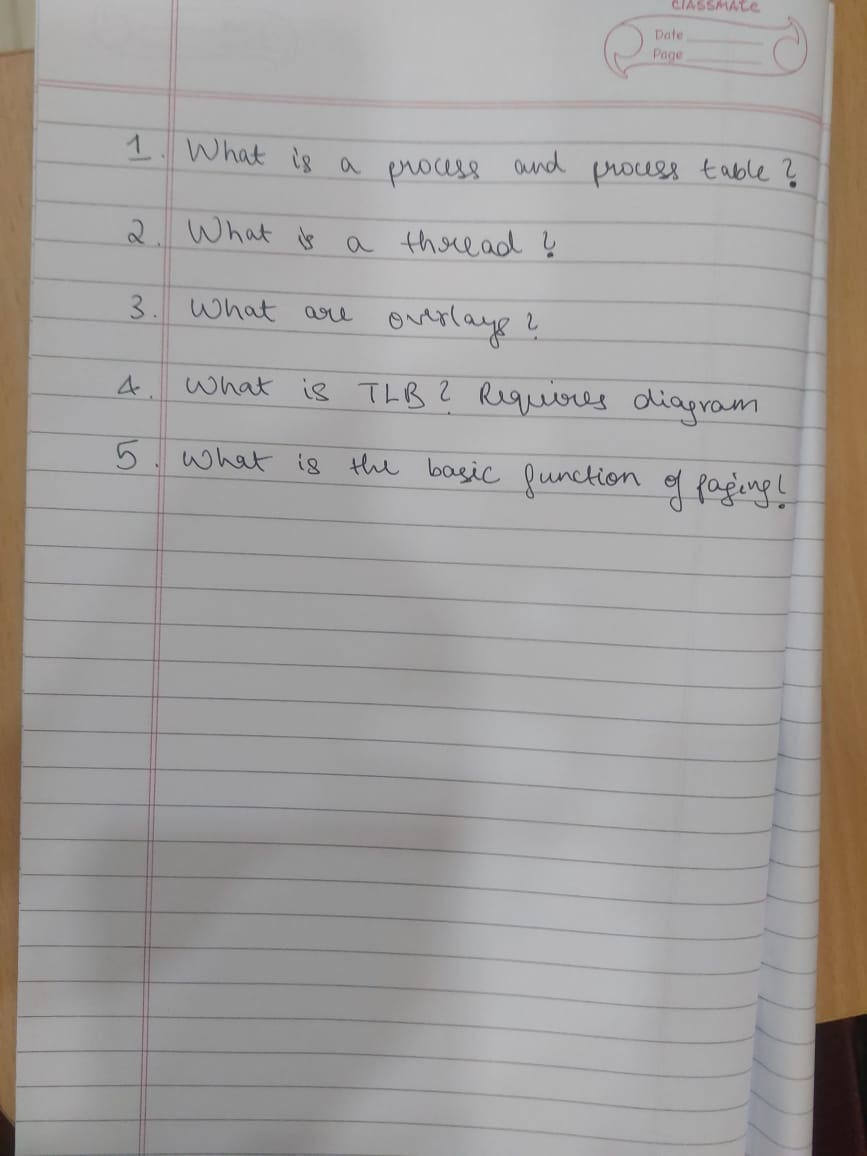 CLASSMATE
Date
Page
1. What is a process and process table?
2. What is a thread?
3. What are overlays?
4. What is TLB? Requires diagram
5. What is the basic function of paging?